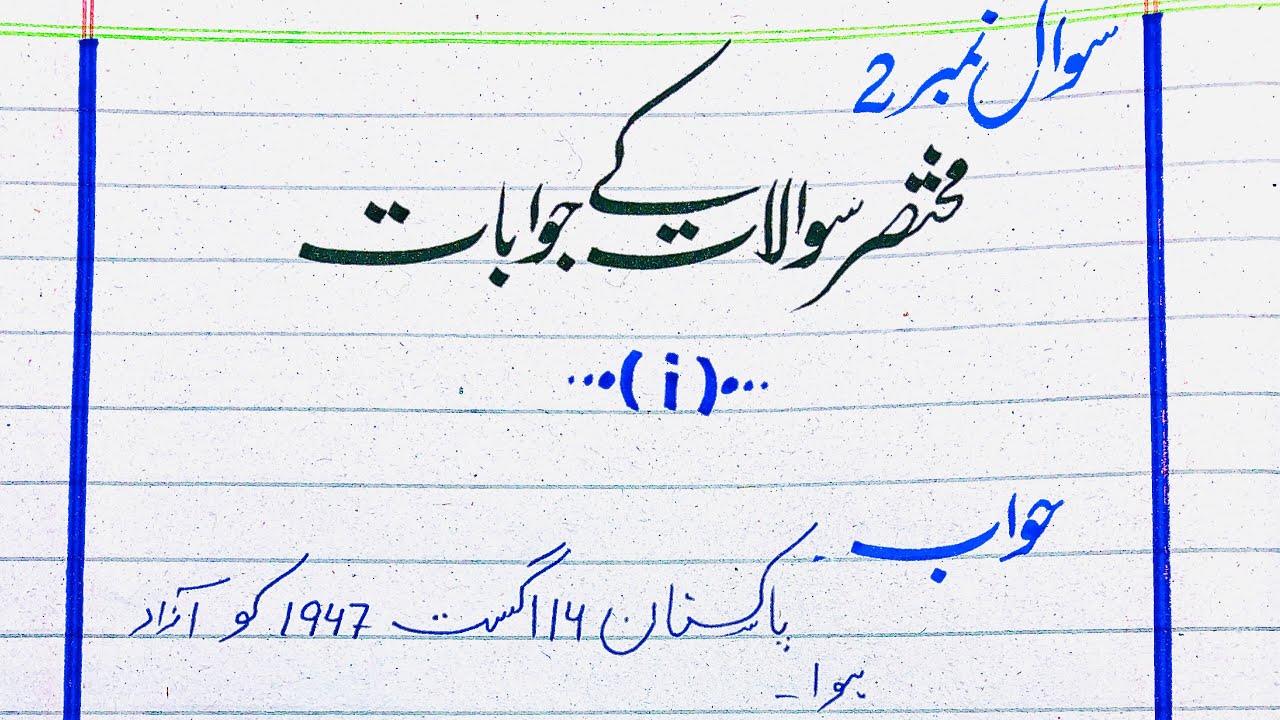 سوال نمبر 2
مختصر سوالات کے جوابات
...(i)...
جواب
پاکستان 14 اگست 1947 کو آزاد
ہوا۔